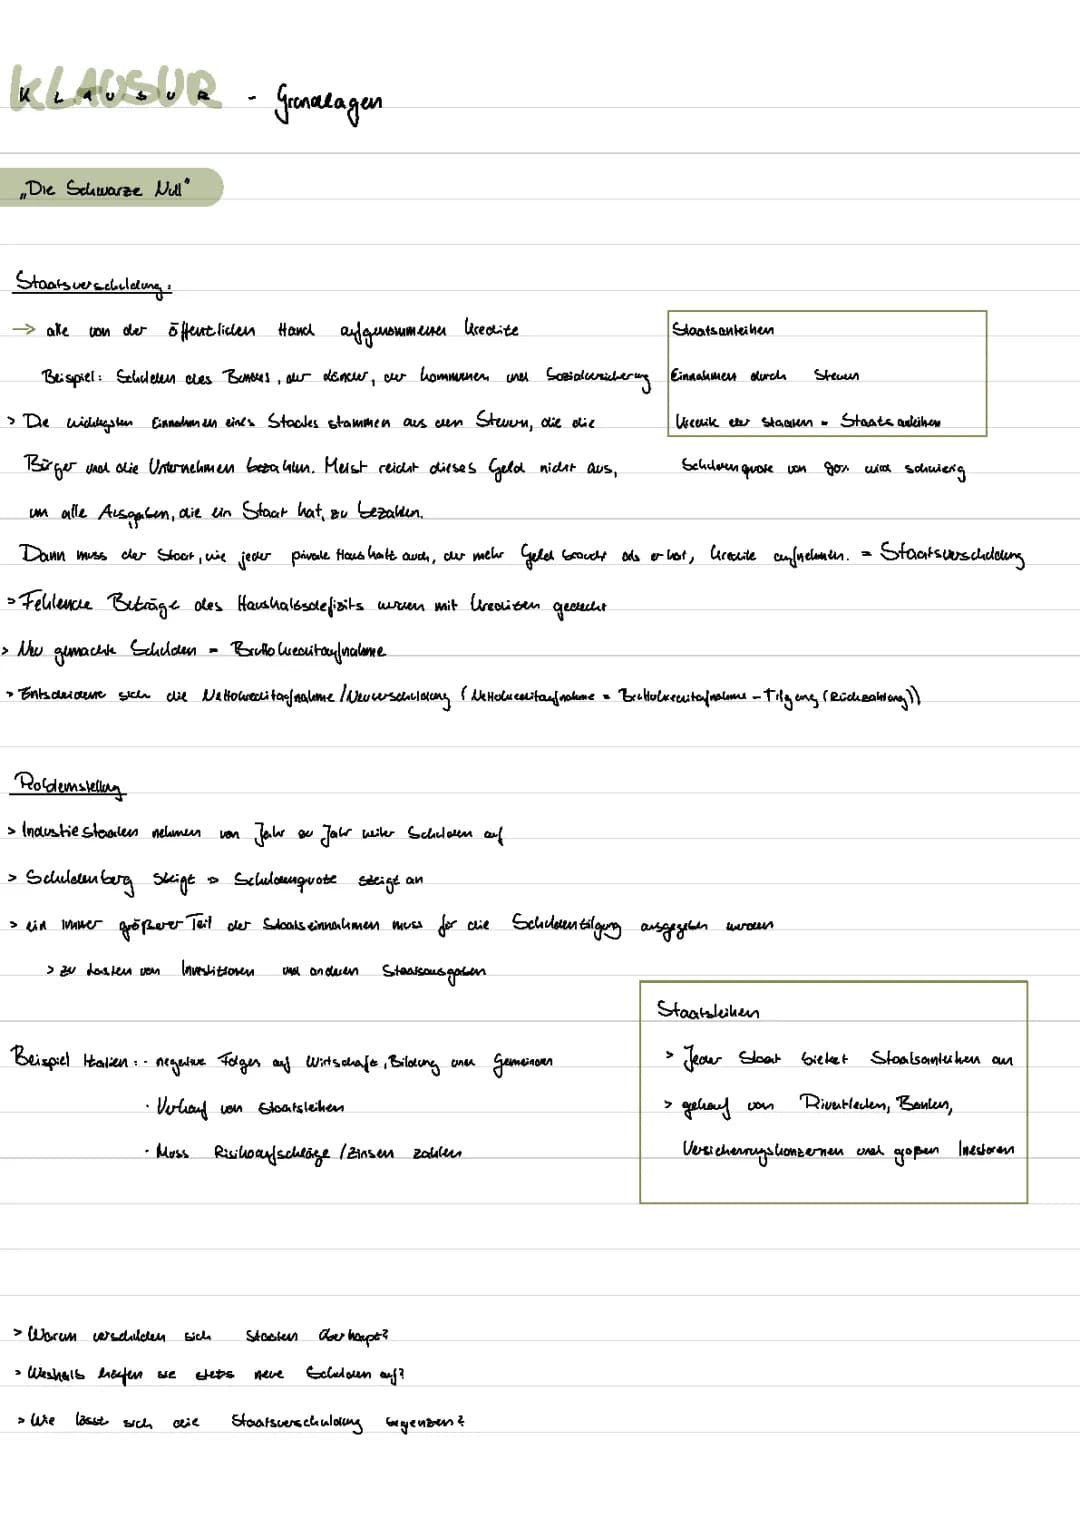 KLAUSUR - Grundlagen
„Die Schwarze Null"
Staatsverschuldung:
→ alle von der öffentlichen Hand aufgenommenen Kredite
Beispiel: Schulden des Bundes, der Länder, der Kommunen und Sozialversicherung
> Die wichtigsten Einnahmen eines Staates stammen aus den Steuern, die die
Bürger und die Unternehmen bezahlen. Meist reicht dieses Geld nicht aus,
um alle Ausgaben, die ein Staat hat, zu bezahlen.
Dann muss der Staat, wie jeder private Haushalt auch, der mehr Geld braucht als er hat, Kredite aufnehmen. = Staatsverschuldung
> Fehlende Beträge des Haushaltsdefizits werden mit Krediten gedeckt
> Neu gemachte Schulden = Bruttokreditaufnahme
> Entscheidend sich die Nettokreditaufnahme / Neuverschuldung (Nettokreditaufnahme = Bruttokreditaufnahme - Tilgung (Rückzahlung))
Staatsanleihen
Einnahmen durch Steuern
Kredite der Staaten = Staatsanleihen
Schuldenquote von 90% wird schwierig
Problemstellung
> Industriestaaten nehmen von Jahr zu Jahr weiter Schulden auf
> Schuldenberg steigt → Schuldenquote steigt an
> ein immer größerer Teil der Staatseinnahmen muss für die Schuldentilgung ausgegeben werden
> zu Lasten von Investitionen und anderen Staatsausgaben
Beispiel Italien: · negative Folgen auf Wirtschaft, Bildung und Gemeinden
· Verkauf von Staatsleihen
· Muss Risikoaufschläge / Zinsen zahlen
Staatsleihen
> Jeder Staat bietet Staatsanleihen an
> gekauf von Privatleuten, Banken,
Versicherungskonzernen und großen Investoren
> Warum verschulden sich Staaten überhaupt?
> Weshalb häufen sie stets neue Schulden auf?
> Wie lässt sich die Staatsverschuldung begrenzen?